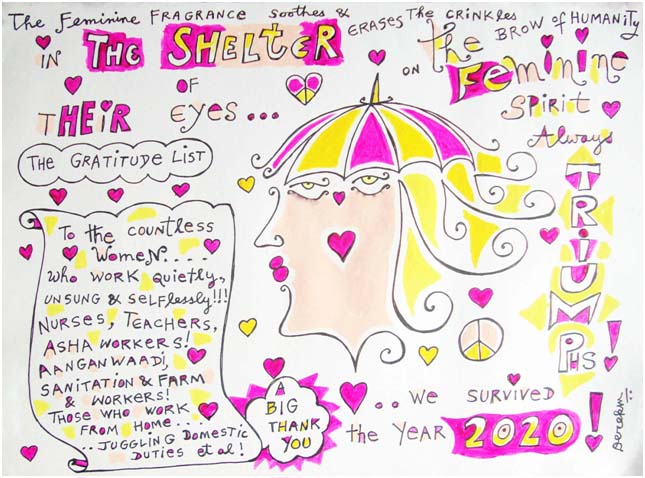 The Feminine FRAGRANCE Soothes & ERASES The CRINKLES
ON BROW OF HUMANITY
IN THE SHELTER
OF
THEIR EYES...
The Feminine
SPIRIT
Always
TRIUMPHS!
THE GRATITUDE LIST
To the COUNTLESS
WOMEN....
WHO WORK QUIETLY,
UNSUNG & SELFLESSLY!!!
NURSES, TEACHERS,
ASHA WORKERS!
AANGANWAADI,
SANITATION & FARM
& WORKERS!
THOSE WHO WORK
FROM HOME....
..JUGGLING DOMESTIC
DUTIES et al!
A
BIG
THANK
YOU
... WE SURVIVED
the YEAR 2020!